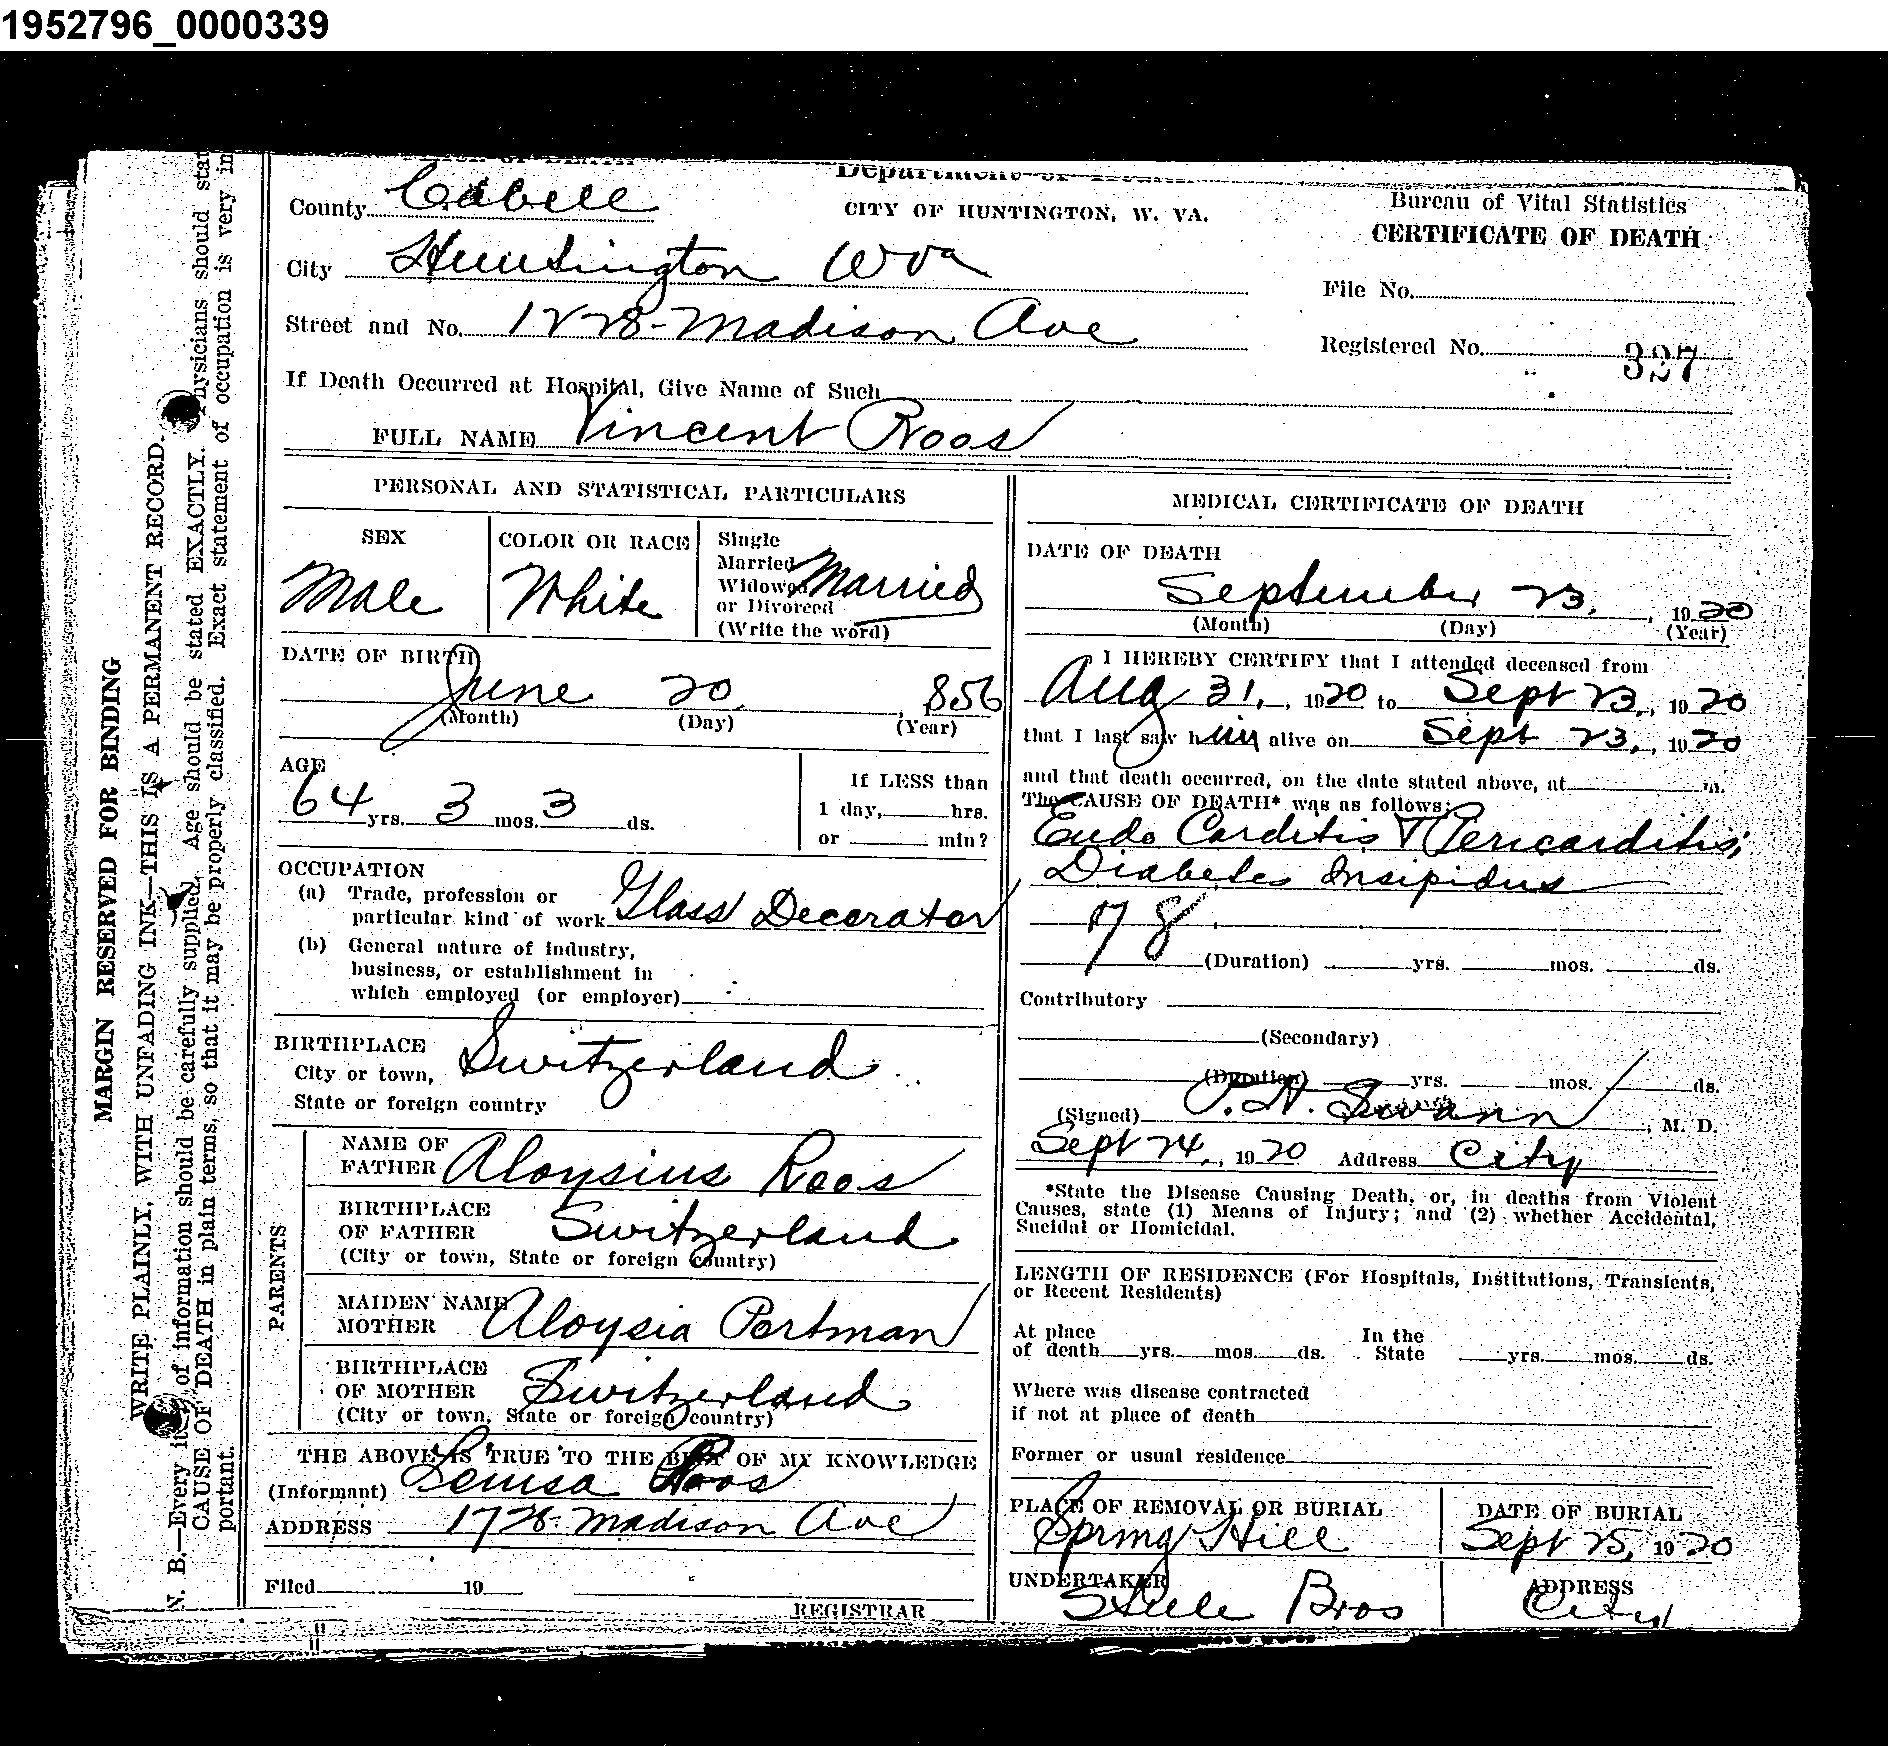 1952796_0000339
County Cabell
CITY OF HUNTINGTON, W. VA.
Bureau of Vital Statistics
CERTIFICATE OF DEATH
City Huntington Wva
File No.
Street and No. 1728 - Madison Ave
Registered No. 327
If Death Occurred at Hospital, Give Name of Such
FULL NAME Vincent Roos
PERSONAL AND STATISTICAL PARTICULARS
SEX
Male
COLOR OR RACE
White
Single
Married
Widowed
or Divorced
(Write the word)
Married
DATE OF BIRTH
June 20, 1856
(Month) (Day) (Year)
AGE
64 yrs. 3 mos. 3 ds.
If LESS than
1 day, hrs.
or min?
OCCUPATION
(a) Trade, profession or
particular kind of work Glass Decorator
(b) General nature of industry,
business, or establishment in
which employed (or employer)
BIRTHPLACE
City or town,
State or foreign country
Switzerland
PARENTS
NAME OF
FATHER Aloysius Roos
BIRTHPLACE
OF FATHER Switzerland
(City or town, State or foreign country)
MAIDEN NAME
MOTHER Aloysia Portman
BIRTHPLACE
OF MOTHER Switzerland
(City or town, State or foreign country)
THE ABOVE IS TRUE TO THE BEST OF MY KNOWLEDGE
(Informant) Louisa Roos
ADDRESS 1728 - Madison Ave
Filed 19
REGISTRAR
MEDICAL CERTIFICATE OF DEATH
DATE OF DEATH
September 23, 1920
(Month) (Day) (Year)
I HEREBY CERTIFY that I attended deceased from
Aug 31, 1920 to Sept 23, 1920
that I last saw him alive on Sept 23, 1920
and that death occurred, on the date stated above, at m.
The CAUSE OF DEATH* was as follows:
Endo Carditis & Pericarditis,
Diabetes Insipidus
78
(Duration) yrs. mos. ds.
Contributory
(Secondary)
(Duration) yrs. mos. ds.
(Signed) Swann, M. D.
Sept 24, 1920 Address City
*State the Disease Causing Death, or, in deaths from Violent
Causes, state (1) Means of Injury; and (2) whether Accidental,
Sucidal or Homicidal.
LENGTH OF RESIDENCE (For Hospitals, Institutions, Transients,
or Recent Residents)
At place
of death yrs. mos. ds.
In the
State yrs. mos. ds.
Where was disease contracted
if not at place of death
Former or usual residence
PLACE OF REMOVAL OR BURIAL
Spring Hill
DATE OF BURIAL
Sept 25, 1920
UNDERTAKER
Steele Bros
ADDRESS
City
MARGIN RESERVED FOR BINDING
WRITE PLAINLY, WITH UNFADING INK—THIS IS A PERMANENT RECORD.
N. B.—Every item of information should be carefully supplied. Age should be stated EXACTLY. Physicians should
CAUSE OF DEATH in plain terms, so that it may be properly classified. Exact statement of occupation is very
portant.